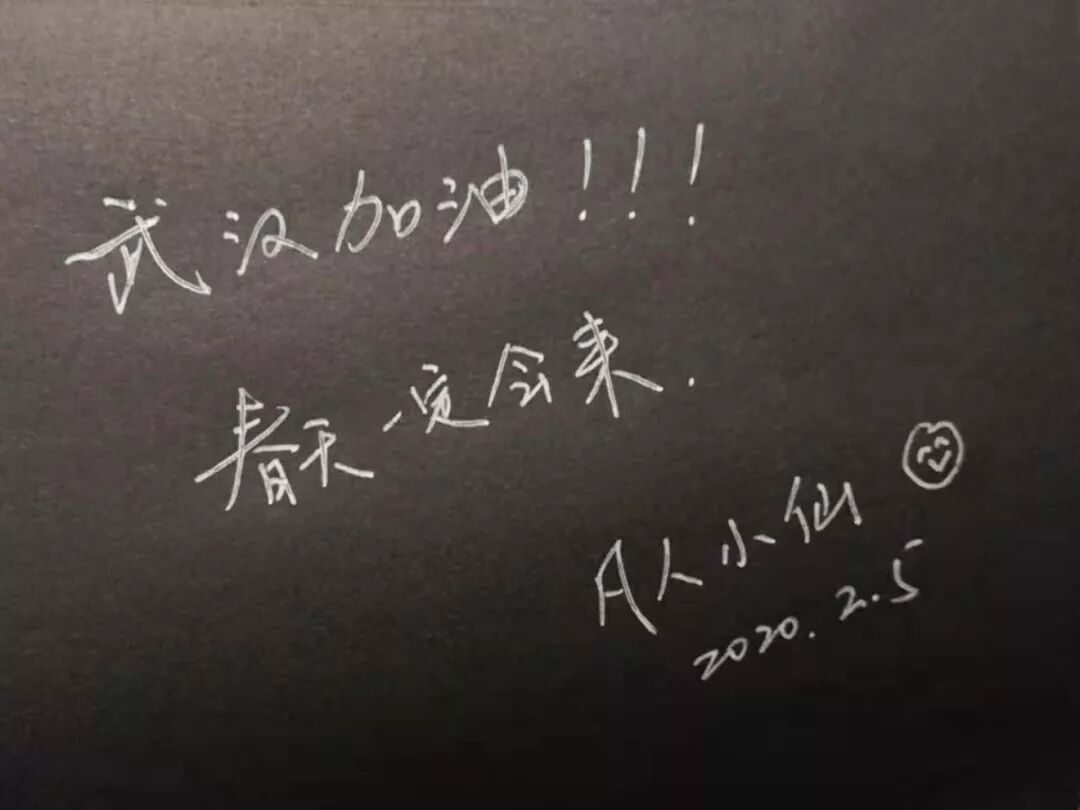 武汉加油!!!
春天一定会来.
凡人小仙
2020.2.5